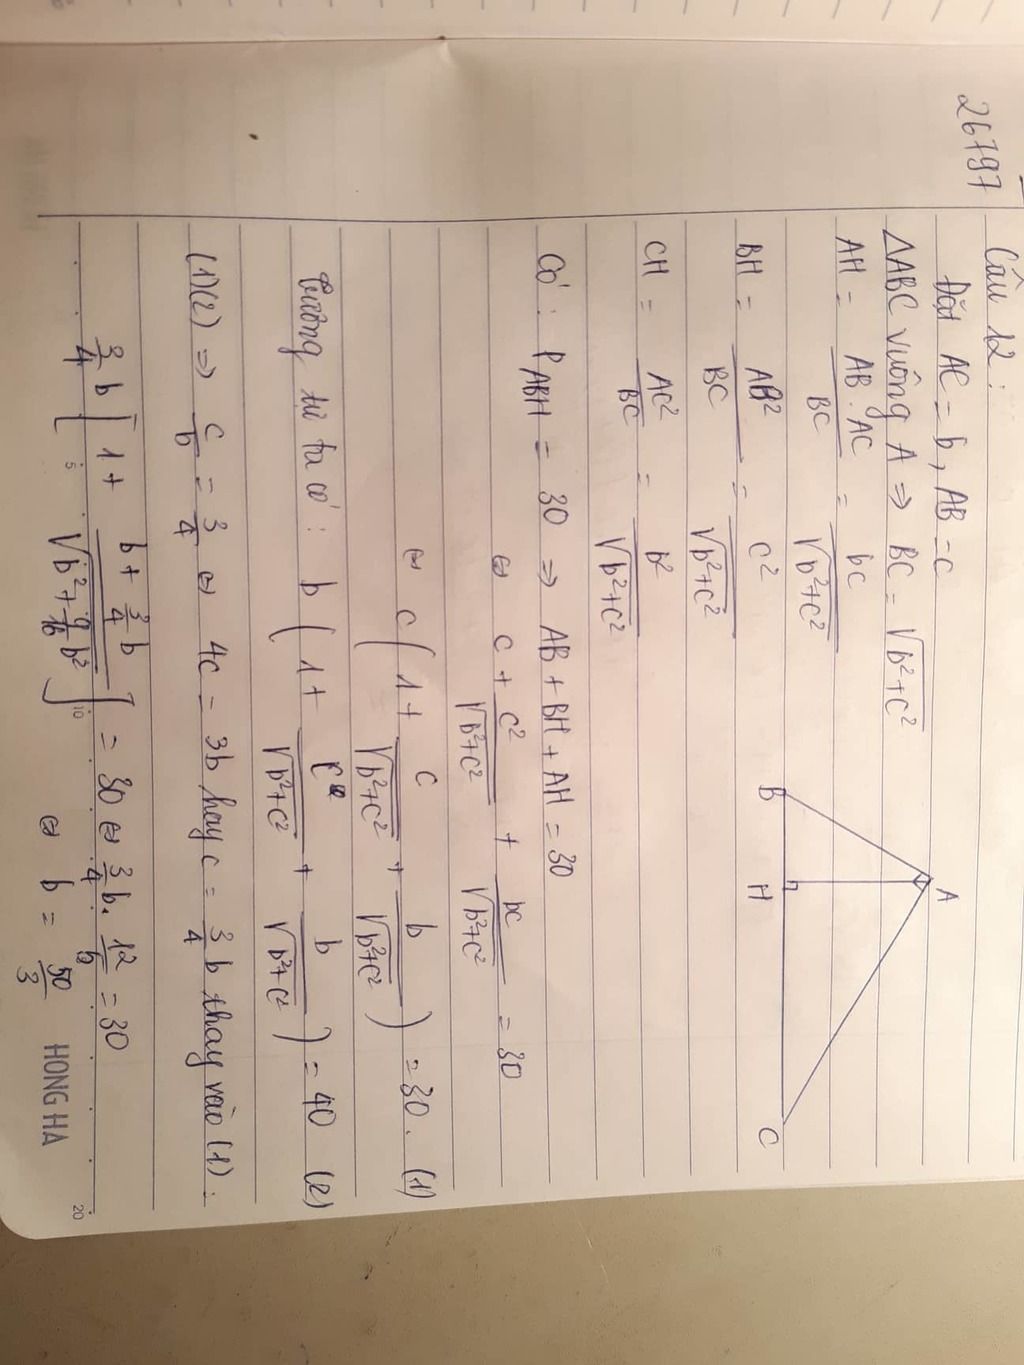 26797
Câu 12:
Đặt AC = b, AB = c
ΔABC vuông A ⇒ BC = √(b²+c²)
AH = AB.AC/BC = bc/√(b²+c²)
BH = AB²/BC = c²/√(b²+c²)
CH = AC²/BC = b²/√(b²+c²)
A
B H C
Có: P_ABH = 30 ⇒ AB + BH + AH = 30
⇔ c + c²/√(b²+c²) + bc/√(b²+c²) = 30
⇔ c(1 + c/√(b²+c²) + b/√(b²+c²)) = 30. (1)
Tương tự ta có: b(1 + c/√(b²+c²) + b/√(b²+c²)) = 40 (2)
(1)(2) ⇒ c/b = 3/4 ⇔ 4c = 3b hay c = 3/4 b thay vào (1):
3/4 b [1 + (b + 3/4 b)/√(b² + 9/16 b²)] = 30 ⇔ 3/4 b. 12/5 = 30
⇔ b = 50/3
5 10 20
HONG HA